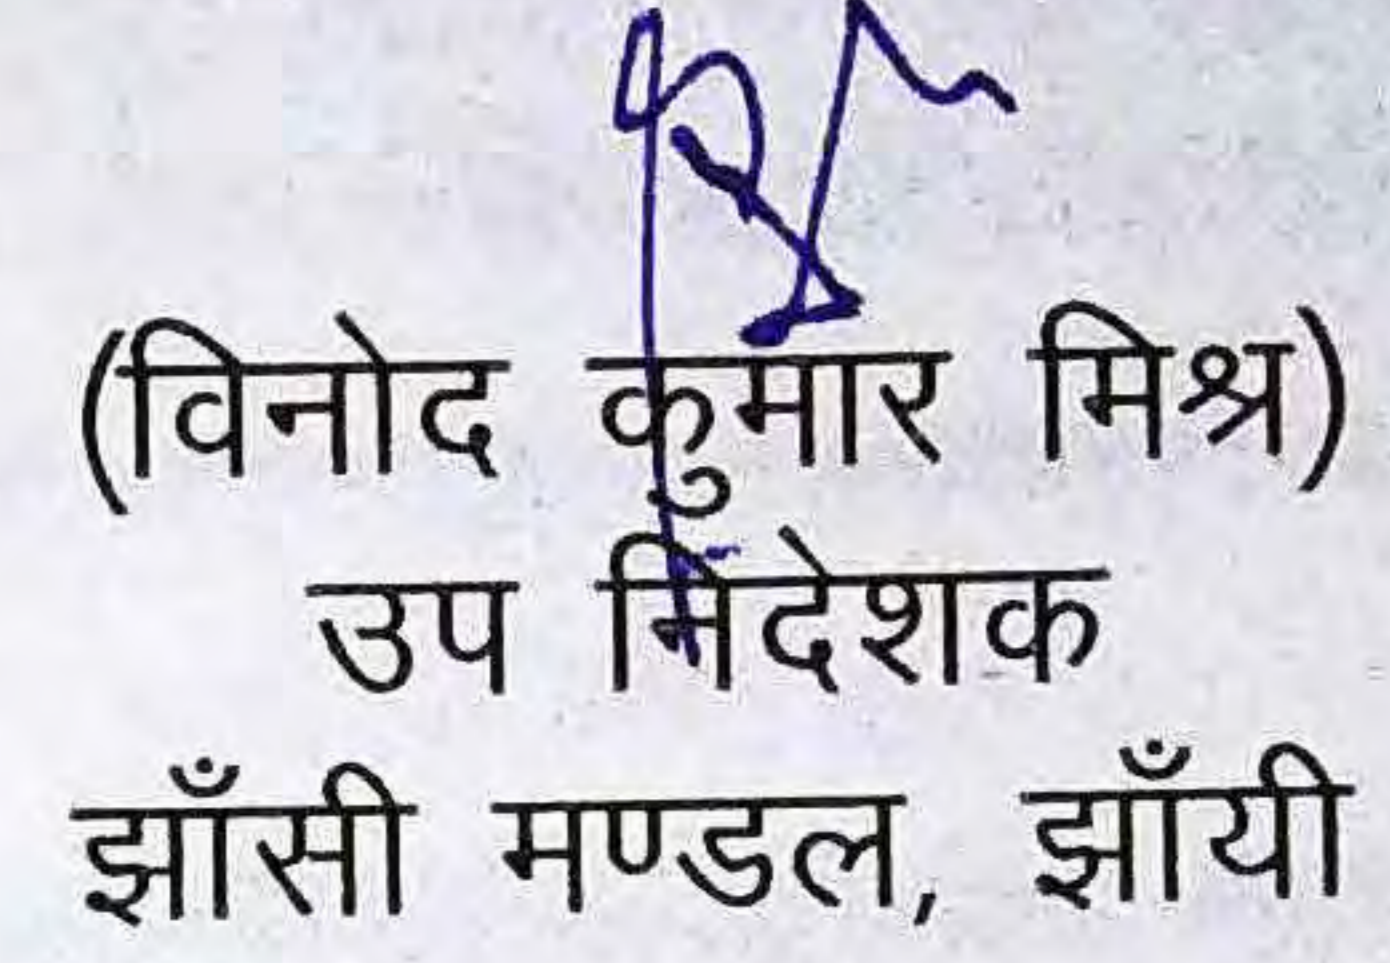 (विनोद कुमार मिश्र)
उप निदेशक
झाँसी मण्डल, झाँयी